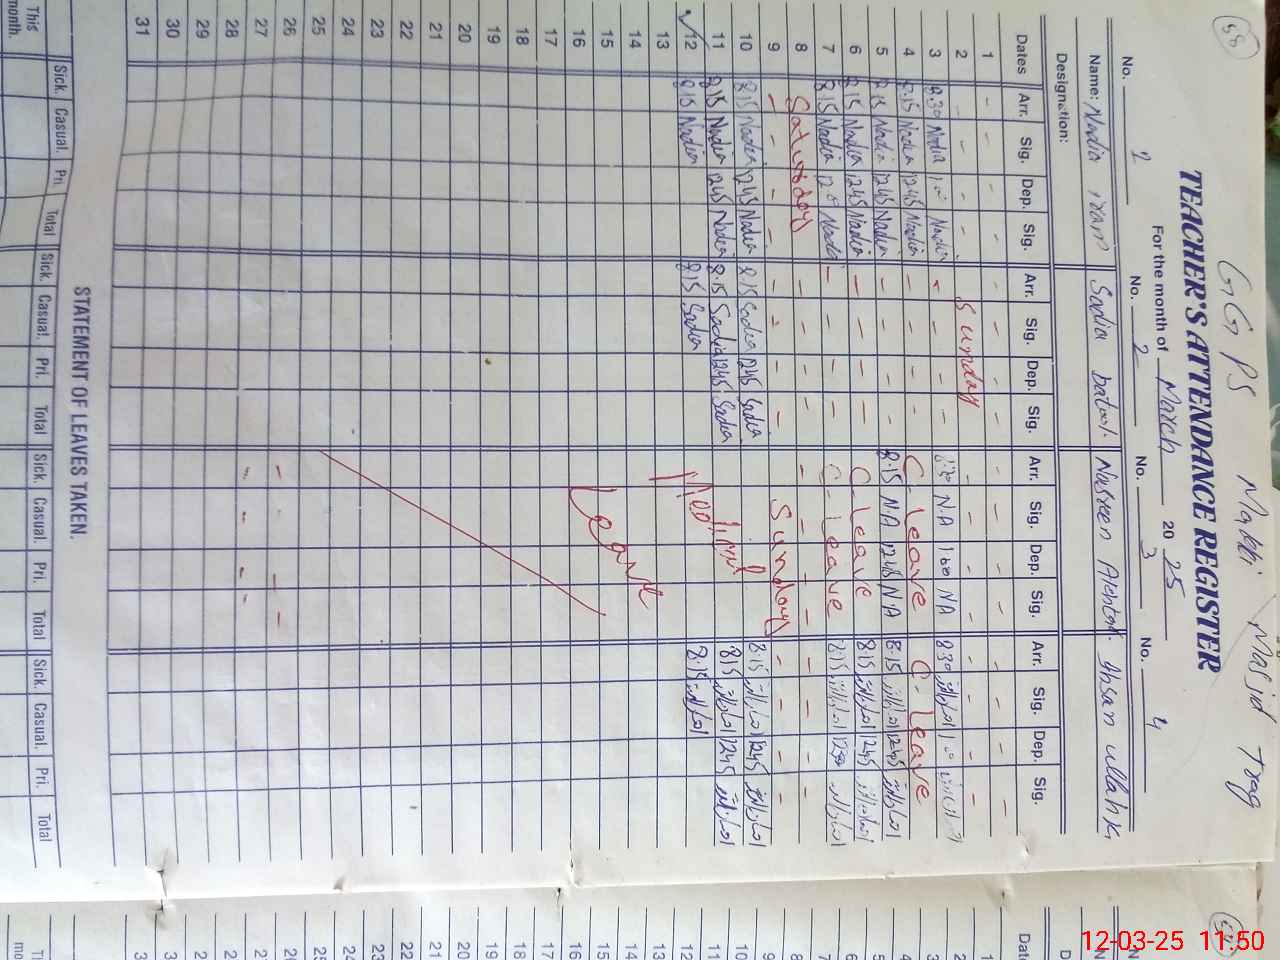 58
GGPS Makki Masjid Trag
TEACHER'S ATTENDANCE REGISTER
For the month of March 2025
No. 2 No. 2 No. 3 No. 4
Name: Nadia Sadia batool Nasreen Akhtar Ahsan ullah
Designation:
Dates Arr. Sig. Dep. Sig. Arr. Sig. Dep. Sig. Arr. Sig. Dep. Sig. Arr. Sig. Dep. Sig.
1 - - - - - - - - - - - - - - - -
2 - - - - Sunday - - - - - - - -
3 8.30 Nadia 1.00 Nadia - - - - N.A 1.00 N.A 8.30 احسان اللہ 1.00
4 8.15 Nadia 12.45 Nadia - - - - C-leave C-leave
5 8.15 Nadia 12.45 Nadia - - - - 8.15 N.A 12.45 N.A 8.15 احسان اللہ 12.45 احسان اللہ
6 8.15 Nadia 12.45 Nadia - - - - C-leave 8.15 احسان اللہ 12.45 احسان اللہ
7 8.15 Nadia Nadia - - - - C-leave 8.15 احسان اللہ 12.30 احسان اللہ
8 Saturday - - - - - - - - - - - -
9 - - - - - - - - Sunday - - - -
10 8.15 Nadia 12.45 Nadia 8.15 Sadia 12.45 Sadia 8.15 احسان اللہ 12.45 احسان اللہ
11 8.15 Nadia 12.45 Nadia 8.15 Sadia 12.45 Sadia 8.15 احسان اللہ 12.45 احسان اللہ
12 8.15 Nadia 8.15 Sadia 8.15 احسان اللہ
13 Medical
14
15 Leave
16
17
18
19
20
21
22
23
24
25
26 - - -
27 - - - -
28
29
30
31
STATEMENT OF LEAVES TAKEN.
Sick. Casual. Pri. Total Sick. Casual. Pri. Total Sick. Casual. Pri. Total Sick. Casual. Pri. Total
This month.
12-03-25 11:50